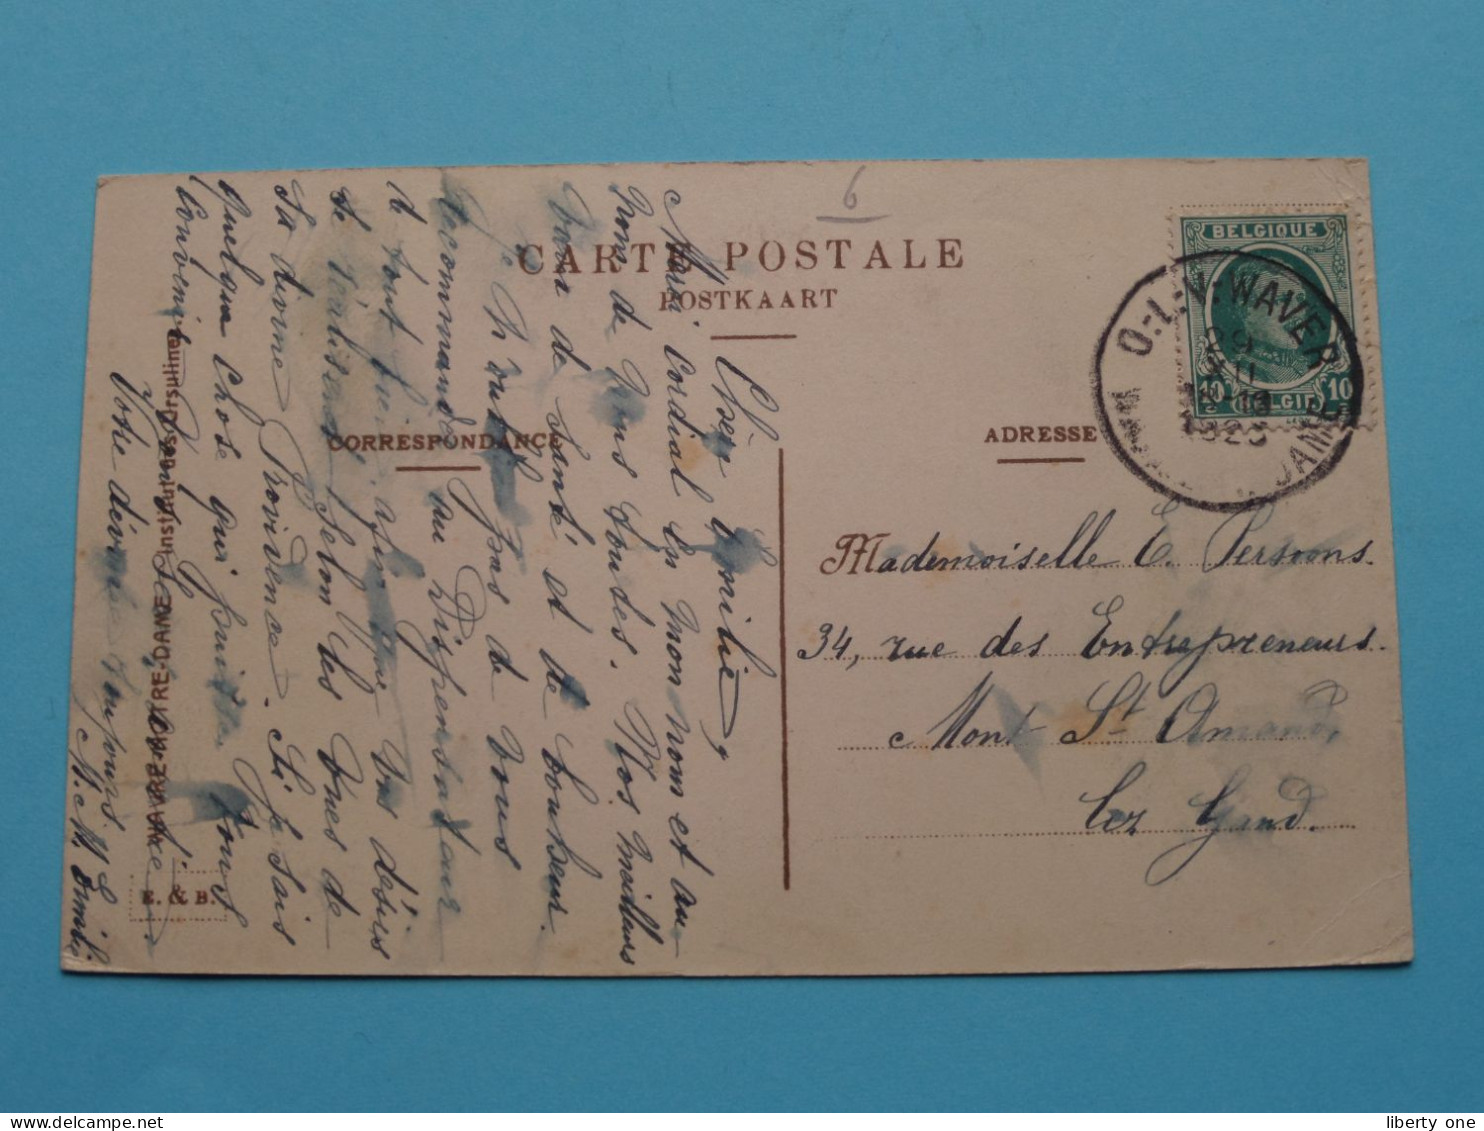 6
CARTE POSTALE
POSTKAART
CORRESPONDANCE
ADRESSE
BELGIQUE
10 10
BELGIË
O.-L.-V.-WAVER
29
XII
1925
Mademoiselle E. Persoons.
34, rue des Entrepreneurs.
Mont St Amand,
lez Gand.
Chère Emilie,
Merci cordial en mon nom et au
nom de nous toutes. Nos meilleurs
vœux de santé et de bonheur.
N'oubliez pas de vous
recommander au Dispensateur
de tout bien, afin que vos désirs
se réalisent selon les vues de
Sa divine Providence. Si je sais
quelque chose qui puisse vous
convenir
Votre dévouée toujours,
M. M. Emilie
WAVRE-NOTRE-DAME Institut des Ursulines
E. & B.
liberty one